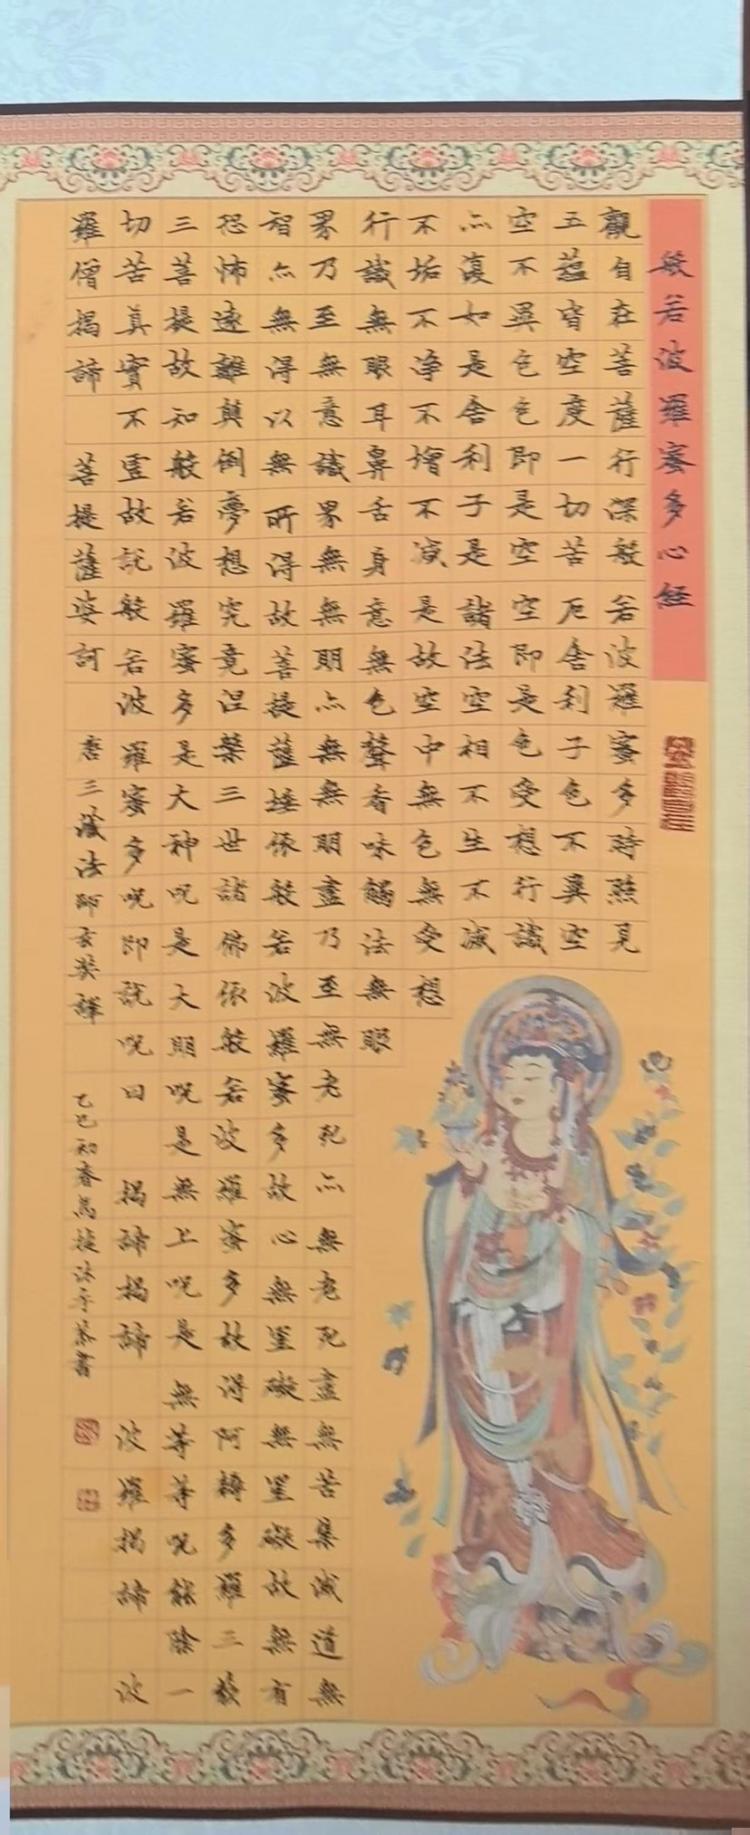 般若波羅蜜多心經
觀自在菩薩行深般若波羅蜜多時照見
五蘊皆空度一切苦厄舍利子色不異空
空不異色色即是空空即是色受想行識
亦復如是舍利子是諸法空相不生不滅
不垢不净不增不減是故空中無色無受想
行識無眼耳鼻舌身意無色聲香味觸法無眼
界乃至無意識界無無明亦無無明盡乃至無老死亦無老死盡無苦集滅道無
智亦無得以無所得故菩提薩埵依般若波羅蜜多故心無罣礙無罣礙故無有
恐怖遠離顛倒夢想究竟涅槃三世諸佛依般若波羅蜜多故得阿耨多羅三藐
三菩提故知般若波羅蜜多是大神呪是大明呪是無上呪是無等等呪能除一
切苦真實不虛故說般若波羅蜜多呪即說呪曰 揭諦揭諦 波羅揭諦 波
羅僧揭諦 菩提薩婆訶 唐三藏法師玄奘譯 乙巳初春馬捷沐手恭書